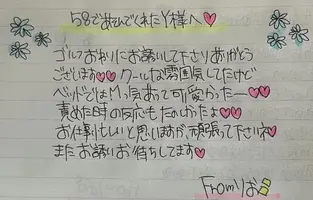 58であそんでくれたY様へ♡
ゴルフおわりにお誘いして下さりありがとう
ございます♡♡クールな雰囲気してたけど
ベッドではMっ気あって可愛かったー♡♡
責めた時の反応もたのしかったよ♡
お仕事忙しいと思いますが、頑張って下さいね♡
またお誘いお待ちしてます♡♡
Fromりお